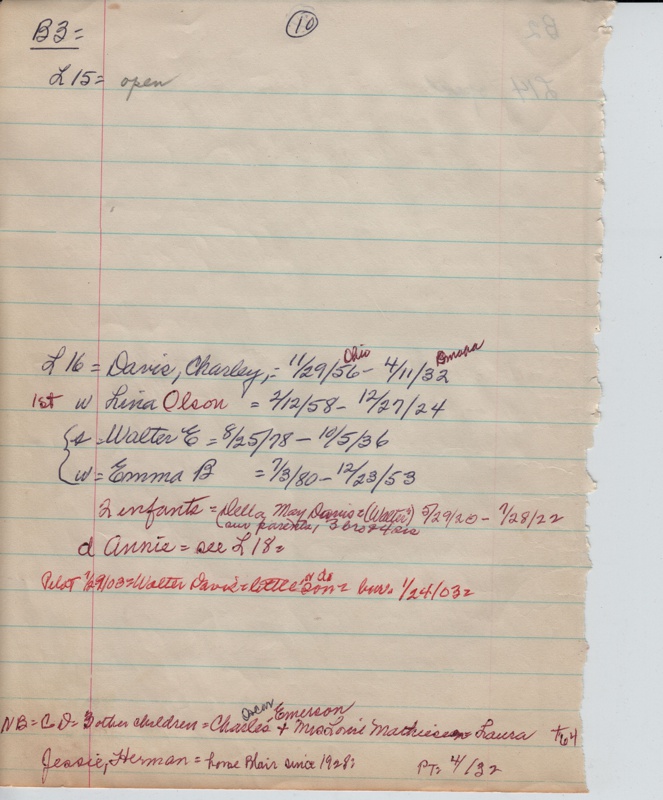 B3=
10
L15= open
L16 = Davis, Charley, = 11/29/56 Ohio - 4/11/32 Omaha
1st w Lina Olson = 2/12/58 - 12/27/24
s = Walter E = 8/25/78 - 10/5/36
w = Emma B = 7/3/80 - 12/23/53
2 infants = Della May Davis = (Walter) 5/29/20 - 7/28/22
sur parents, 3 bro 4 sis
d Annie = see L18=
Pilot 1/29/03 = Walter Davis = little son = bur. 1/24/03=
NB = CD = 3 other children = Charles Oscar Emerson + Mrs Louie Mathiesen = Laura
Jessie, Herman = home Blair since 1928: PT= 4/32